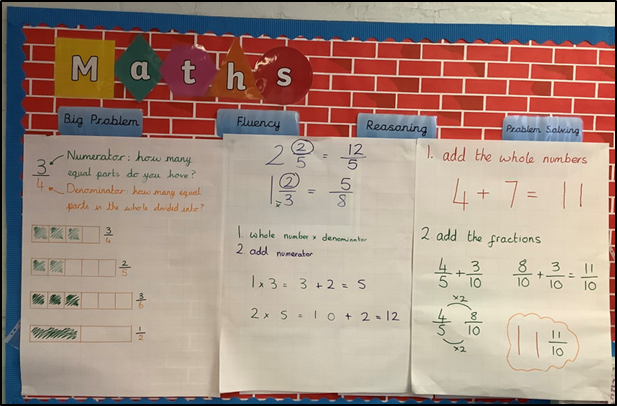 Maths
Big Problem
Fluency
Reasoning
Problem Solving
3/4
Numerator: how many
equal parts do you have?
Denominator: how many equal
parts is the whole divided into?
3/4
2/5
3/6
1/2
2 2/5 = 12/5
1 2/3 = 5/8
1 whole number × denominator
2. add numerator
1 × 3 = 3 + 2 = 5
2 × 5 = 10 + 2 = 12
1. add the whole numbers
4 + 7 = 11
2 add the fractions
4/5 + 3/10 8/10 + 3/10 = 11/10
×2
4/5 8/10
×2
11 11/10